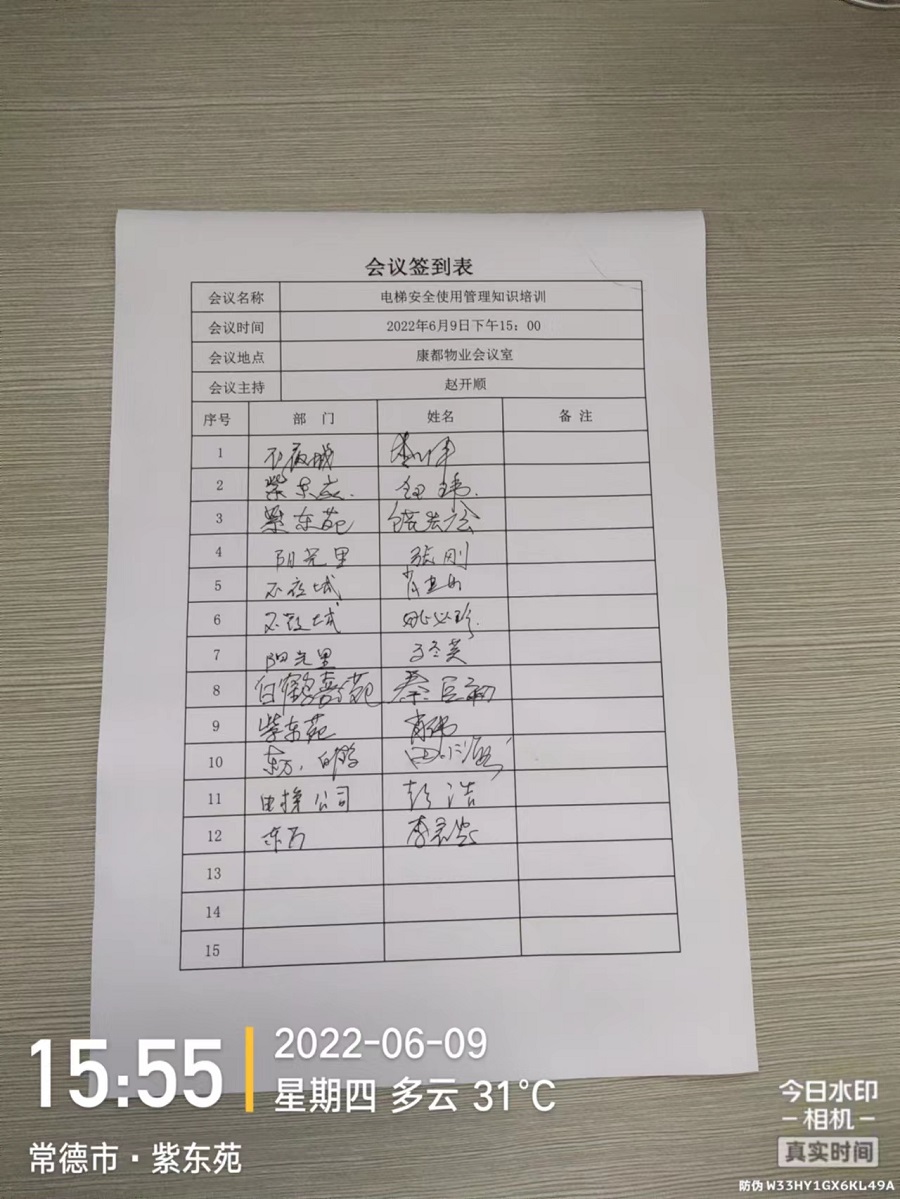 会议签到表
会议名称 电梯安全使用管理知识培训
会议时间 2022年6月9日下午15：00
会议地点 康都物业会议室
会议主持 赵开顺
序号 部 门 姓名 备 注
1 不夜城
2 紫东苑.
3 紫东苑
4 阳光里 张刚
5 不夜城
6 不夜城 姚必珍.
7 阳光里
8 白鹤嘉苑 秦
9 紫东苑 肖伟
10 东方、白鹤 田
11 电梯公司 彭浩
12 东方 李
13
14
15
15:55 2022-06-09
星期四 多云 31°C
常德市·紫东苑
今日水印
-相机-
真实时间
防伪 W33HY1GX6KL49A